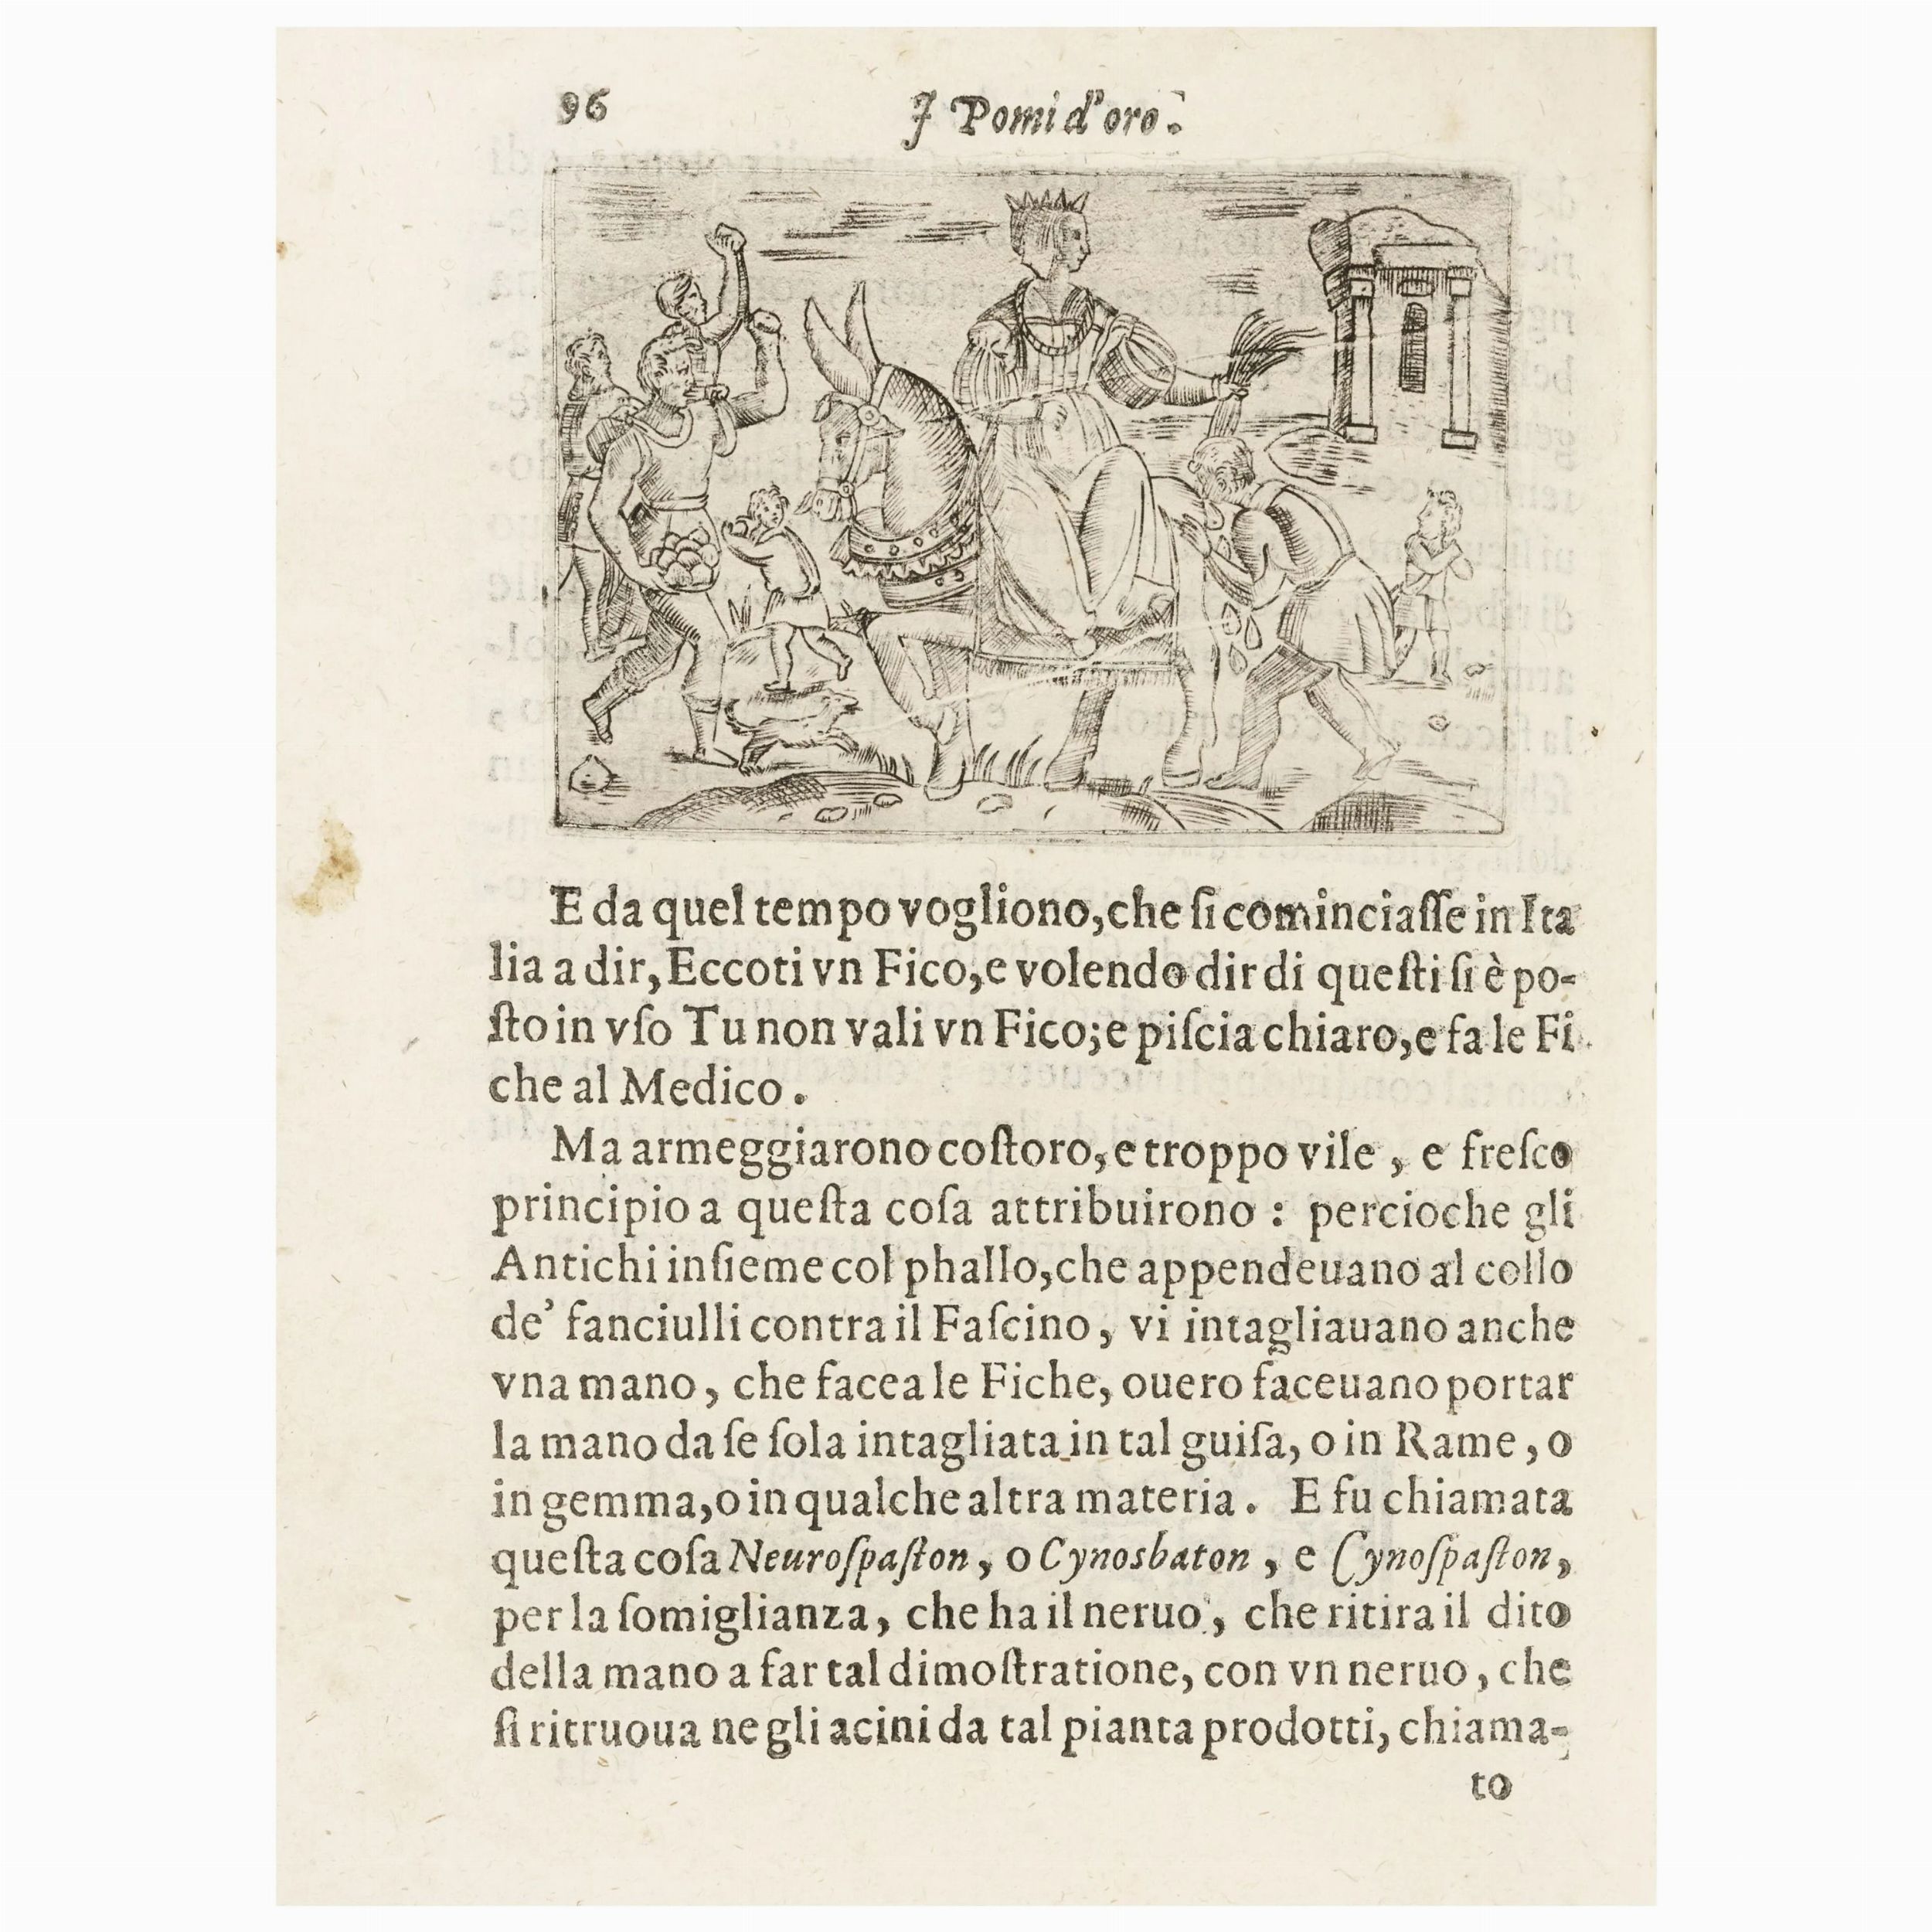 96
I Pomi d'oro.
E da quel tempo vogliono, che ſi cominciaſſe in Ita
lia a dir, Eccoti vn Fico, e volendo dir di queſti ſi è po-
ſto in vſo Tu non vali vn Fico; e piſcia chiaro, e fa le Fi
che al Medico.
Ma armeggiarono coſtoro, e troppo vile, e freſco
principio a queſta coſa attribuirono: percioche gli
Antichi inſieme col phallo, che appendeuano al collo
de' fanciulli contra il Faſcino, vi intagliauano anche
vna mano, che facea le Fiche, ouero faceuano portar
la mano da ſe ſola intagliata in tal guiſa, o in Rame, o
in gemma, o in qualche altra materia. E fu chiamata
queſta coſa Neuroſpaſton, o Cynosbaton, e Cynoſpaſton,
per la ſomiglianza, che ha il neruo, che ritira il dito
della mano a far tal dimoſtratione, con vn neruo, che
ſi ritruoua ne gli acini da tal pianta prodotti, chiama-
to